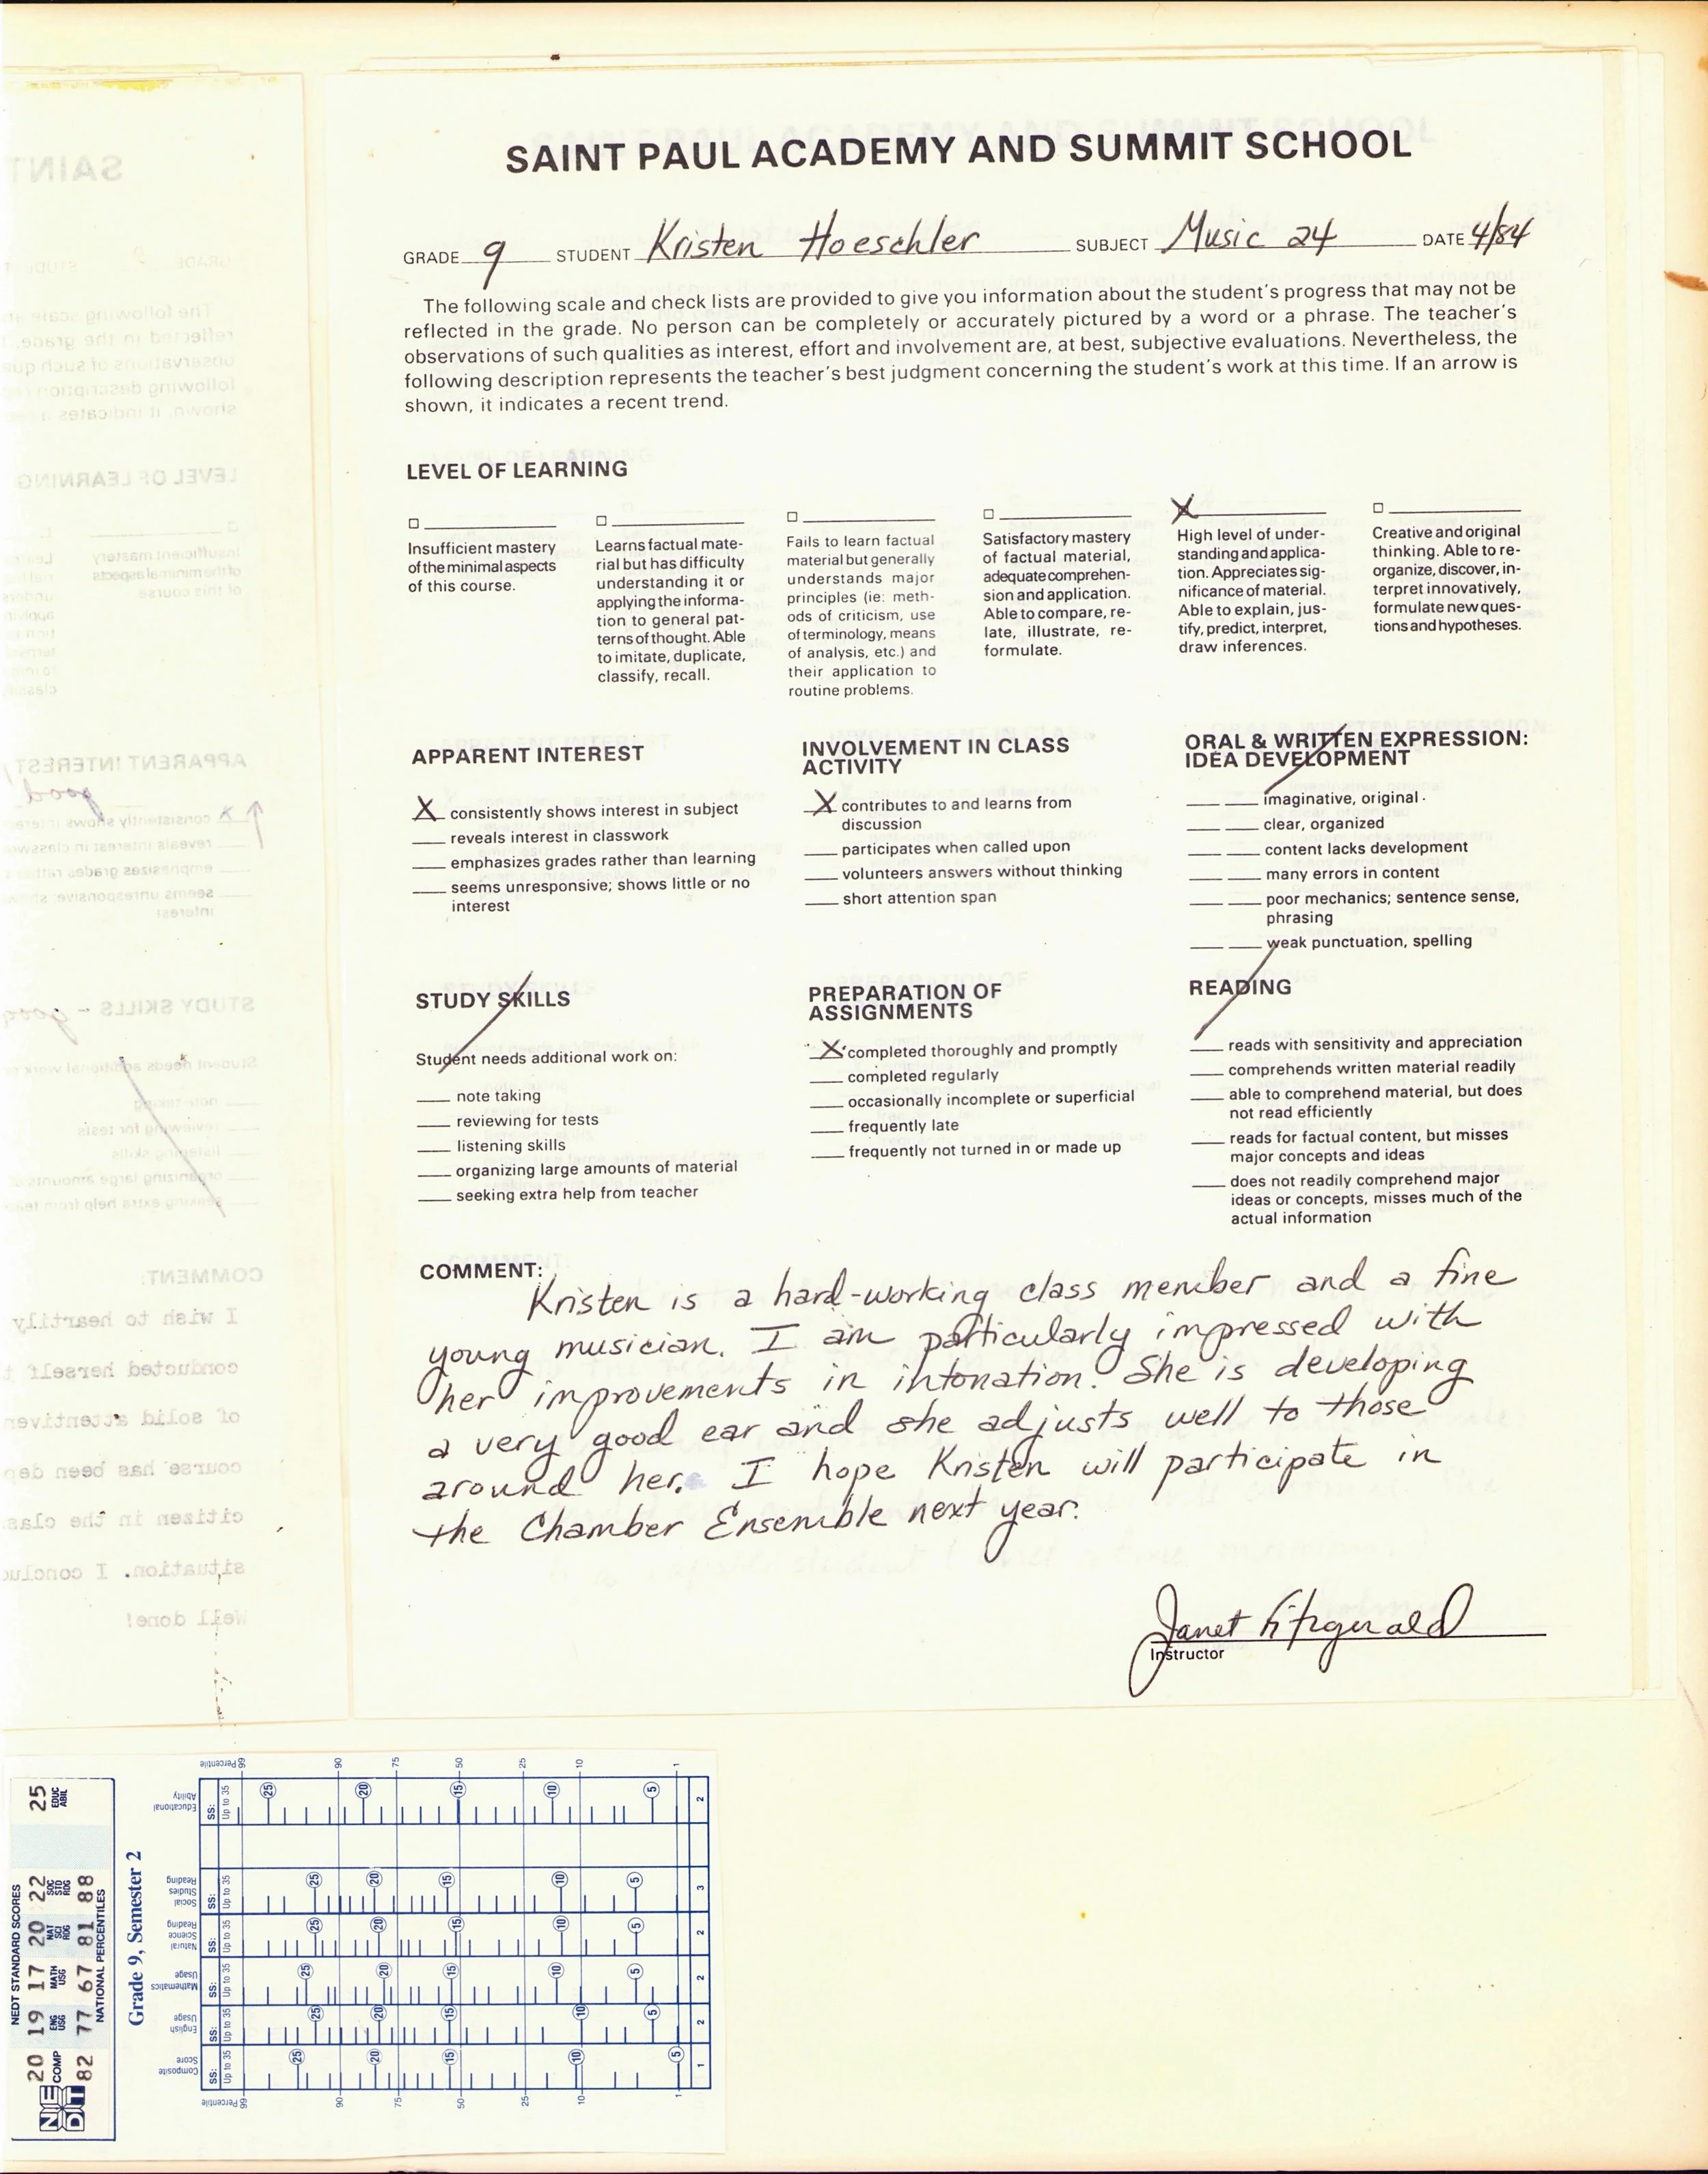 SAINT PAUL ACADEMY AND SUMMIT SCHOOL
GRADE 9 STUDENT Kristen Hoeschler SUBJECT Music 24 DATE 4/84
The following scale and check lists are provided to give you information about the student's progress that may not be
reflected in the grade. No person can be completely or accurately pictured by a word or a phrase. The teacher's
observations of such qualities as interest, effort and involvement are, at best, subjective evaluations. Nevertheless, the
following description represents the teacher's best judgment concerning the student's work at this time. If an arrow is
shown, it indicates a recent trend.
LEVEL OF LEARNING
Insufficient mastery
of the minimal aspects
of this course.
Learns factual mate-
rial but has difficulty
understanding it or
applying the informa-
tion to general pat-
terns of thought. Able
to imitate, duplicate,
classify, recall.
Fails to learn factual
material but generally
understands major
principles (ie: meth-
ods of criticism, use
of terminology, means
of analysis, etc.) and
their application to
routine problems.
Satisfactory mastery
of factual material,
adequate comprehen-
sion and application.
Able to compare, re-
late, illustrate, re-
formulate.
X
High level of under-
standing and applica-
tion. Appreciates sig-
nificance of material.
Able to explain, jus-
tify, predict, interpret,
draw inferences.
Creative and original
thinking. Able to re-
organize, discover, in-
terpret innovatively,
formulate new ques-
tions and hypotheses.
APPARENT INTEREST
X consistently shows interest in subject
reveals interest in classwork
emphasizes grades rather than learning
seems unresponsive; shows little or no
interest
INVOLVEMENT IN CLASS
ACTIVITY
X contributes to and learns from
discussion
participates when called upon
volunteers answers without thinking
short attention span
ORAL & WRITTEN EXPRESSION:
IDEA DEVELOPMENT
imaginative, original
clear, organized
content lacks development
many errors in content
poor mechanics; sentence sense,
phrasing
weak punctuation, spelling
STUDY SKILLS
Student needs additional work on:
note taking
reviewing for tests
listening skills
organizing large amounts of material
seeking extra help from teacher
PREPARATION OF
ASSIGNMENTS
X completed thoroughly and promptly
completed regularly
occasionally incomplete or superficial
frequently late
frequently not turned in or made up
READING
reads with sensitivity and appreciation
comprehends written material readily
able to comprehend material, but does
not read efficiently
reads for factual content, but misses
major concepts and ideas
does not readily comprehend major
ideas or concepts, misses much of the
actual information
COMMENT:
Kristen is a hard-working class member and a fine
young musician. I am particularly impressed with
her improvements in intonation. She is developing
a very good ear and she adjusts well to those
around her. I hope Kristen will participate in
the Chamber Ensemble next year.
Janet Fitzgerald
Instructor
NEDT STANDARD SCORES
20 19 17 20 22 25
COMP ENG USG MATH USG NAT SCI RDG SOC STD RDG EDUC ABIL
82 77 67 81 88
NATIONAL PERCENTILES
NEDT
Grade 9, Semester 2
Percentile 99 90 75 50 25 10 1
Educational Ability SS: Up to 35 25 20 15 10 5 2
Social Studies Reading SS: Up to 35 25 20 15 10 5 3
Natural Science Reading SS: Up to 35 25 20 15 10 5 2
Mathematics Usage SS: Up to 35 25 20 15 10 5 2
English Usage SS: Up to 35 25 20 15 10 5 2
Composite Score SS: Up to 35 25 20 15 10 5 1
Percentile 99 90 75 50 25 10 1